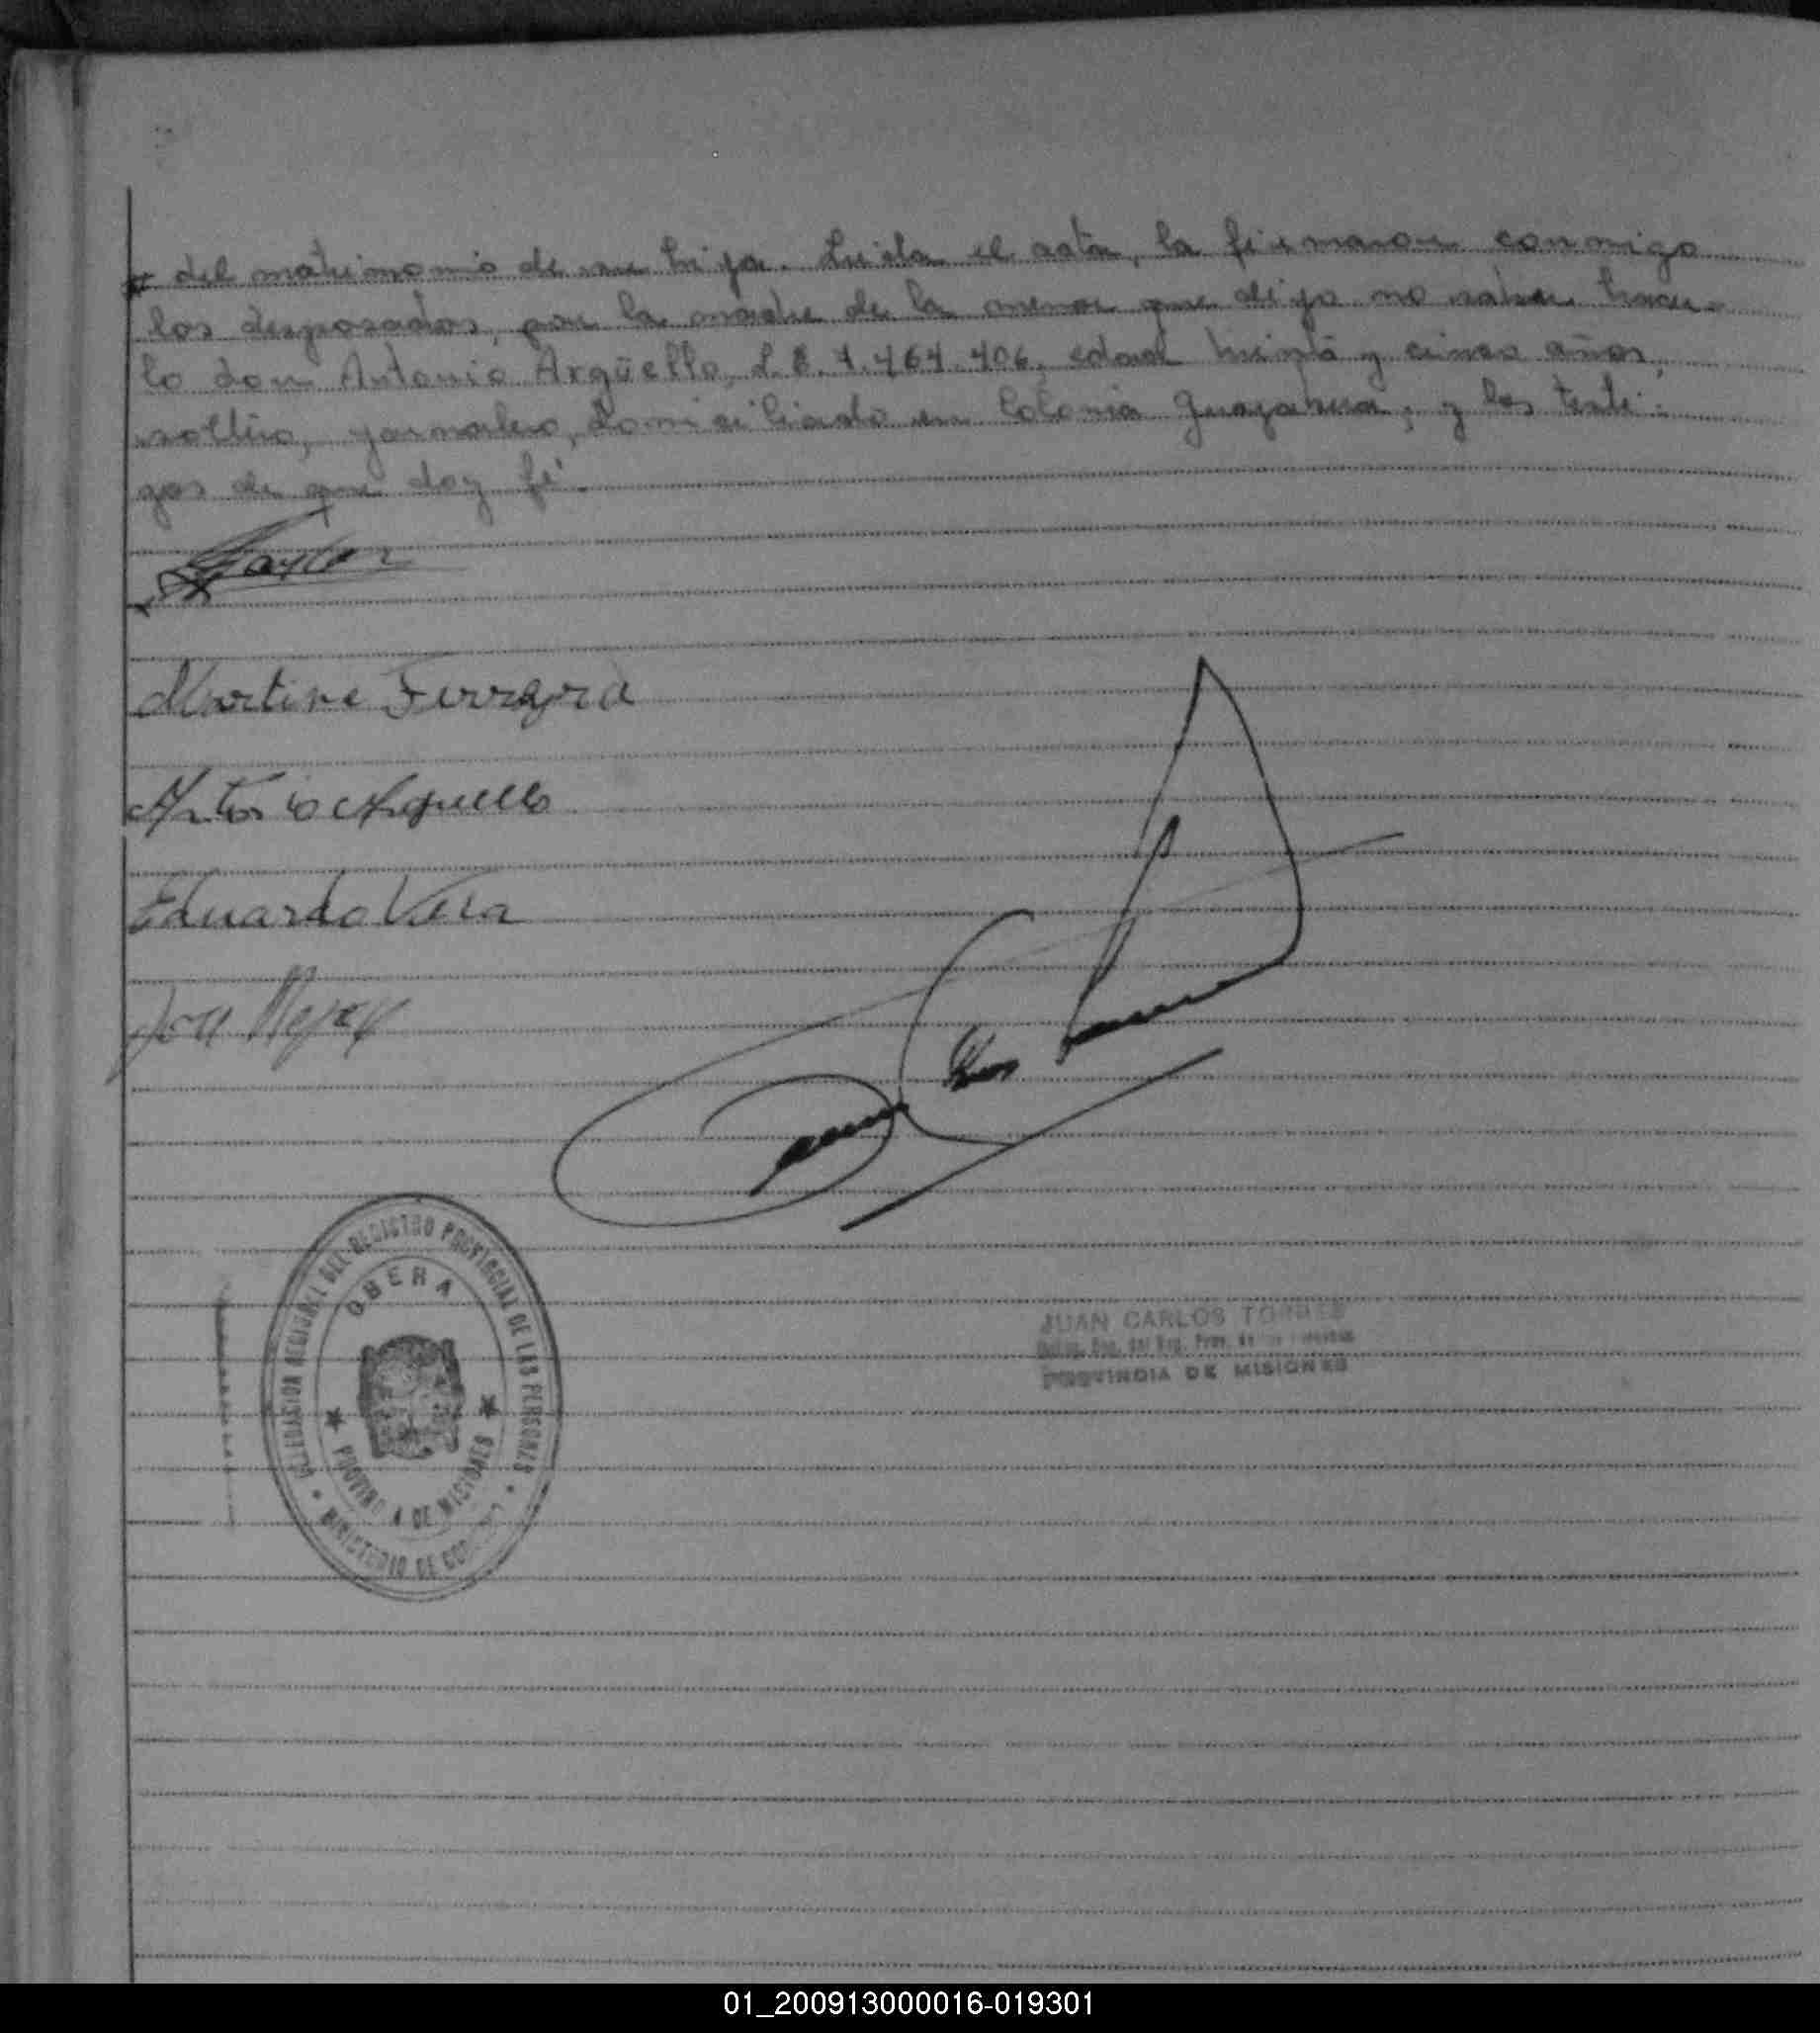 del matrimonio de su hija. Leída el acta, la firmaron conmigo
los desposados, por la madre de la menor que dijo no saber hacer-
lo don Antonio Argüello, L.E. 7.464.406, edad treinta y cinco años,
soltero, jornalero, domiciliado en Colonia Guayabera, y los testi-
gos de que doy fé.
Martine Ferreyra
Antonio Arguello
Eduardo Vera
DELEGACION REGIONAL DEL REGISTRO PROVINCIAL DE LAS PERSONAS
OBERA
PROVINCIA DE MISIONES
MINISTERIO DE
JUAN CARLOS TORRES
Deleg. Reg. del Reg. Prov. de las Personas
PROVINCIA DE MISIONES
01_200913000016-019301